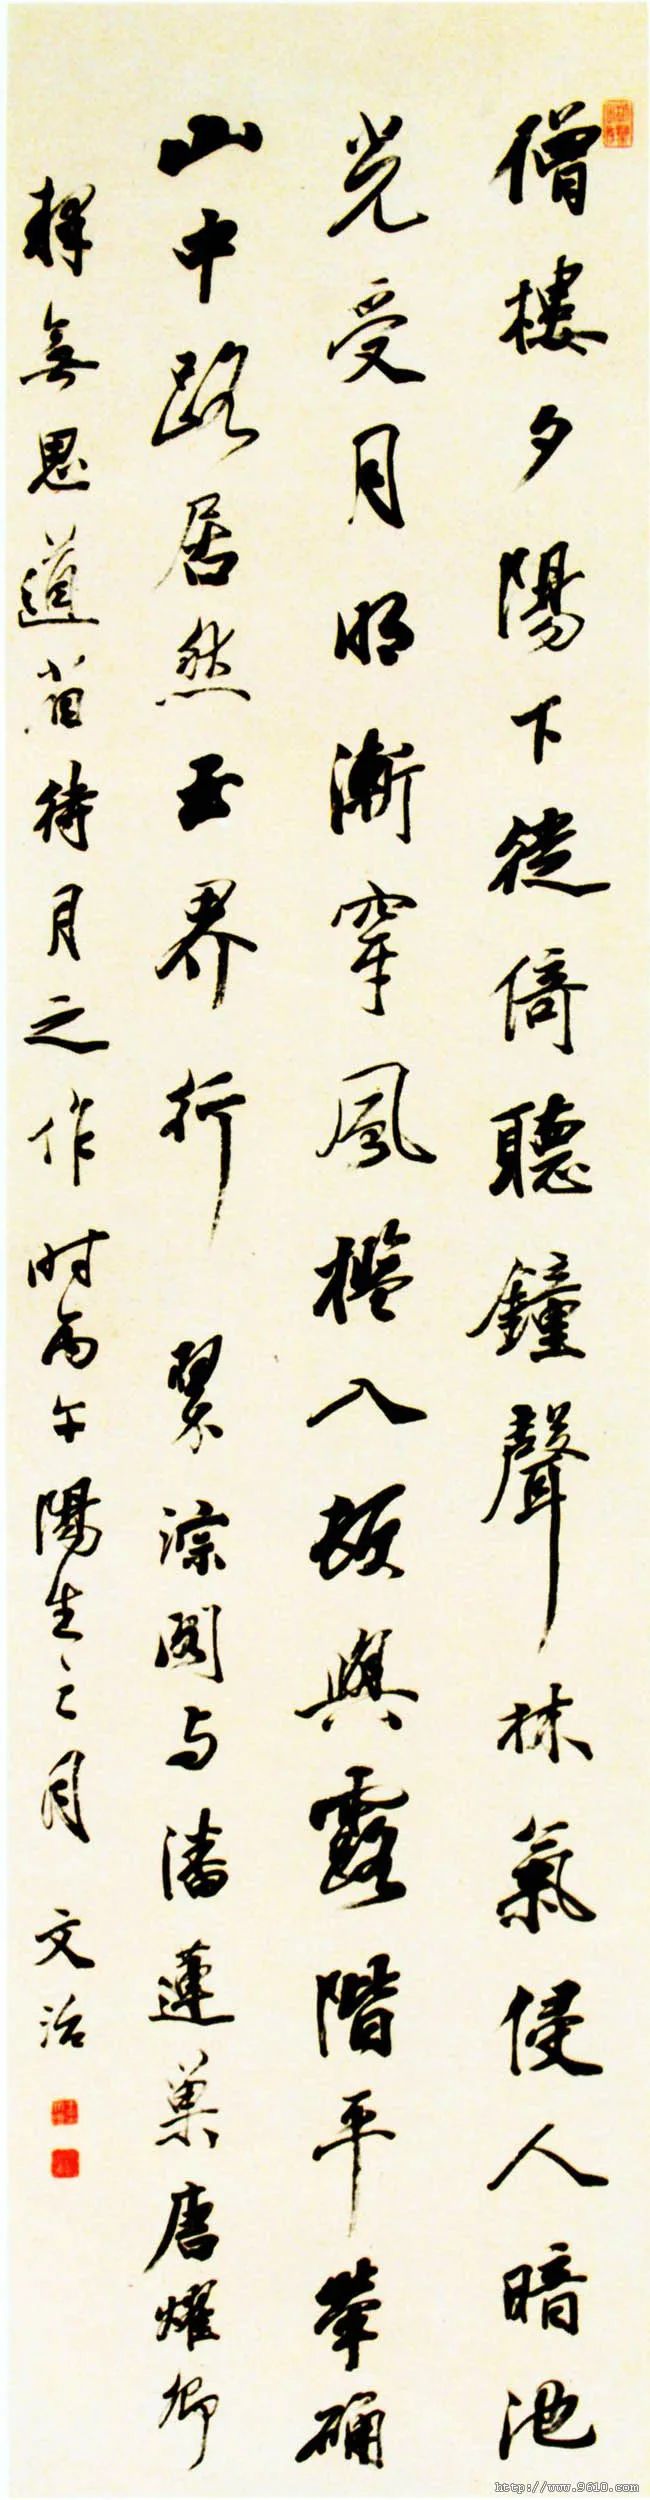 僧樓夕陽下徙倚聽鐘聲林氣侵人暗池
光受月明漸穿風檻入故與露階平犖确
山中路居然玉界行 翠淙閣与潘蓮巢唐耀卿
釋無思道省待月之作时丙午陽生之月 文治
http://www.9610.com